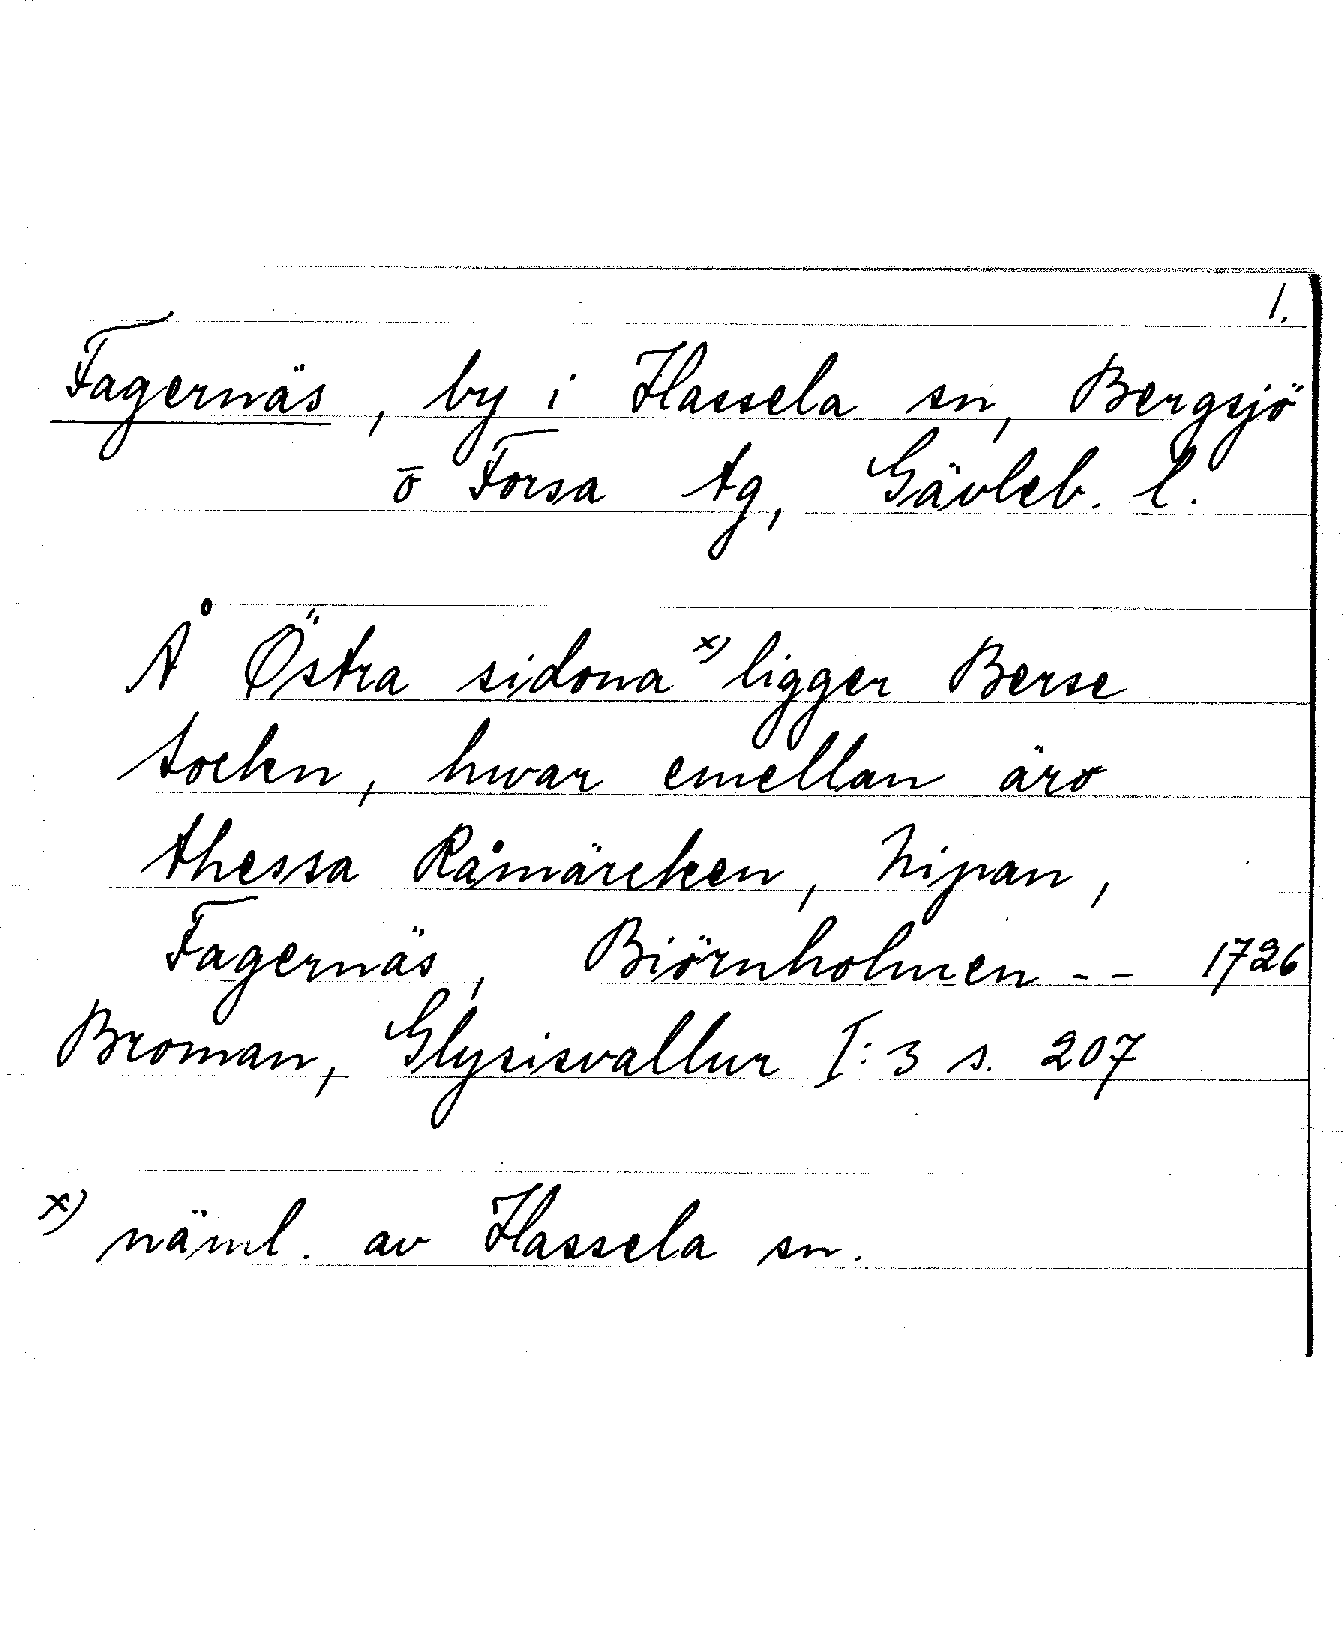 1.
Fagernäs, by i Hassela sn, Bergsjö
o Forsa tg, Gävleb. l.
Å Östra sidona x) ligger Berse
sockn, hwar emellan äro
thessa Råmärcken, Nipan,
Fagernäs, Biörnholmen -- 1726
Broman, Glysisvallur I:3 s. 207
x) näml. av Hassela sn.